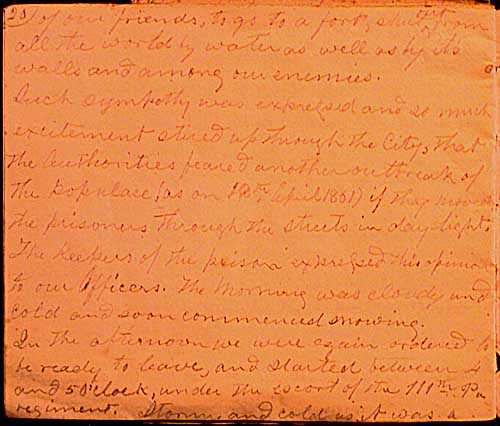 20) of our friends, to go to a fort, shut out from
all the world by water as well as by its
walls and among our enemies.
Such sympathy was expressed and so much
excitement stired up through the City, that
the Authorities feared another outbreak of
the populace, (as on 19th April 1861) if they moved
the prisoners through the streets in daylight.
The Keepers of the prison expressed this opinion
to our Officers. The Morning was cloudy and
cold and soon commenced snowing.
In the afternoon we were again ordered to
be ready to leave, and started between 4
and 5 O'clock, under the escort of the 111th Pa
regiment. Stormy and cold as it was a